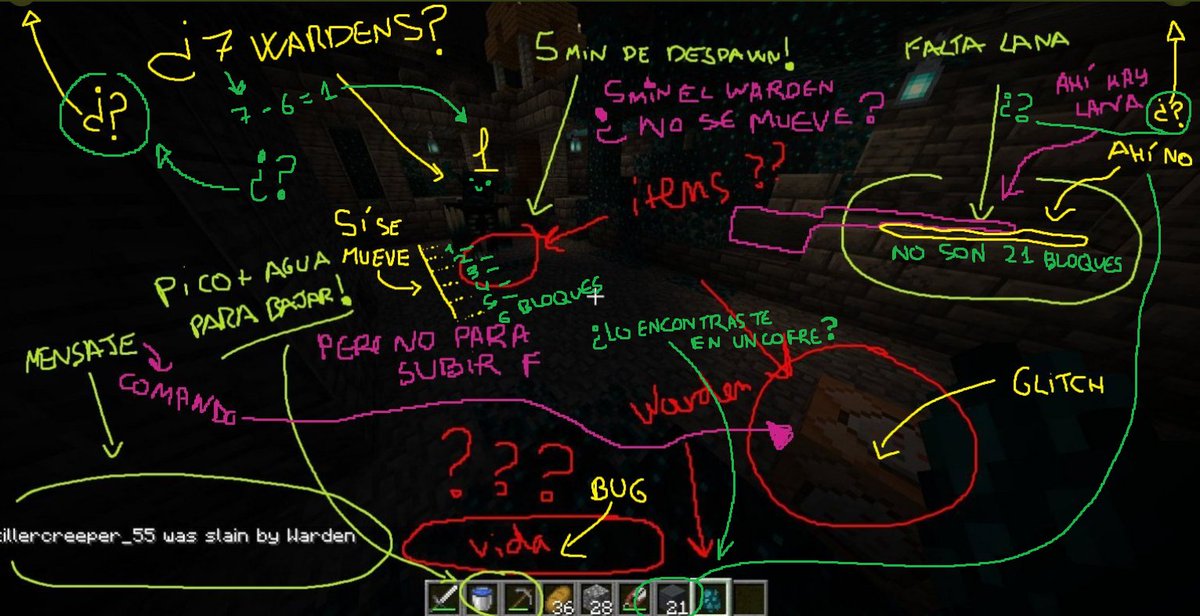 ¿7 WARDENS?
7-6=1
¿?
¿?
1
5 MIN DE DESPAWN!
5 MIN EL WARDEN
¿ NO SE MUEVE?
FALTA LANA
¿?
AHÍ HAY
LANA
¿?
AHÍ NO
items??
SÍ SE
MUEVE
1
2
3
4
5
6 BLOQUES
NO SON 21 BLOQUES
PICO + AGUA
PARA BAJAR!
PERO NO PARA
SUBIR F
MENSAJE
COMANDO
¿LO ENCONTRASTE
EN UN COFRE?
Warden
GLITCH
???
BUG
vida
killercreeper_55 was slain by Warden
36
28
21